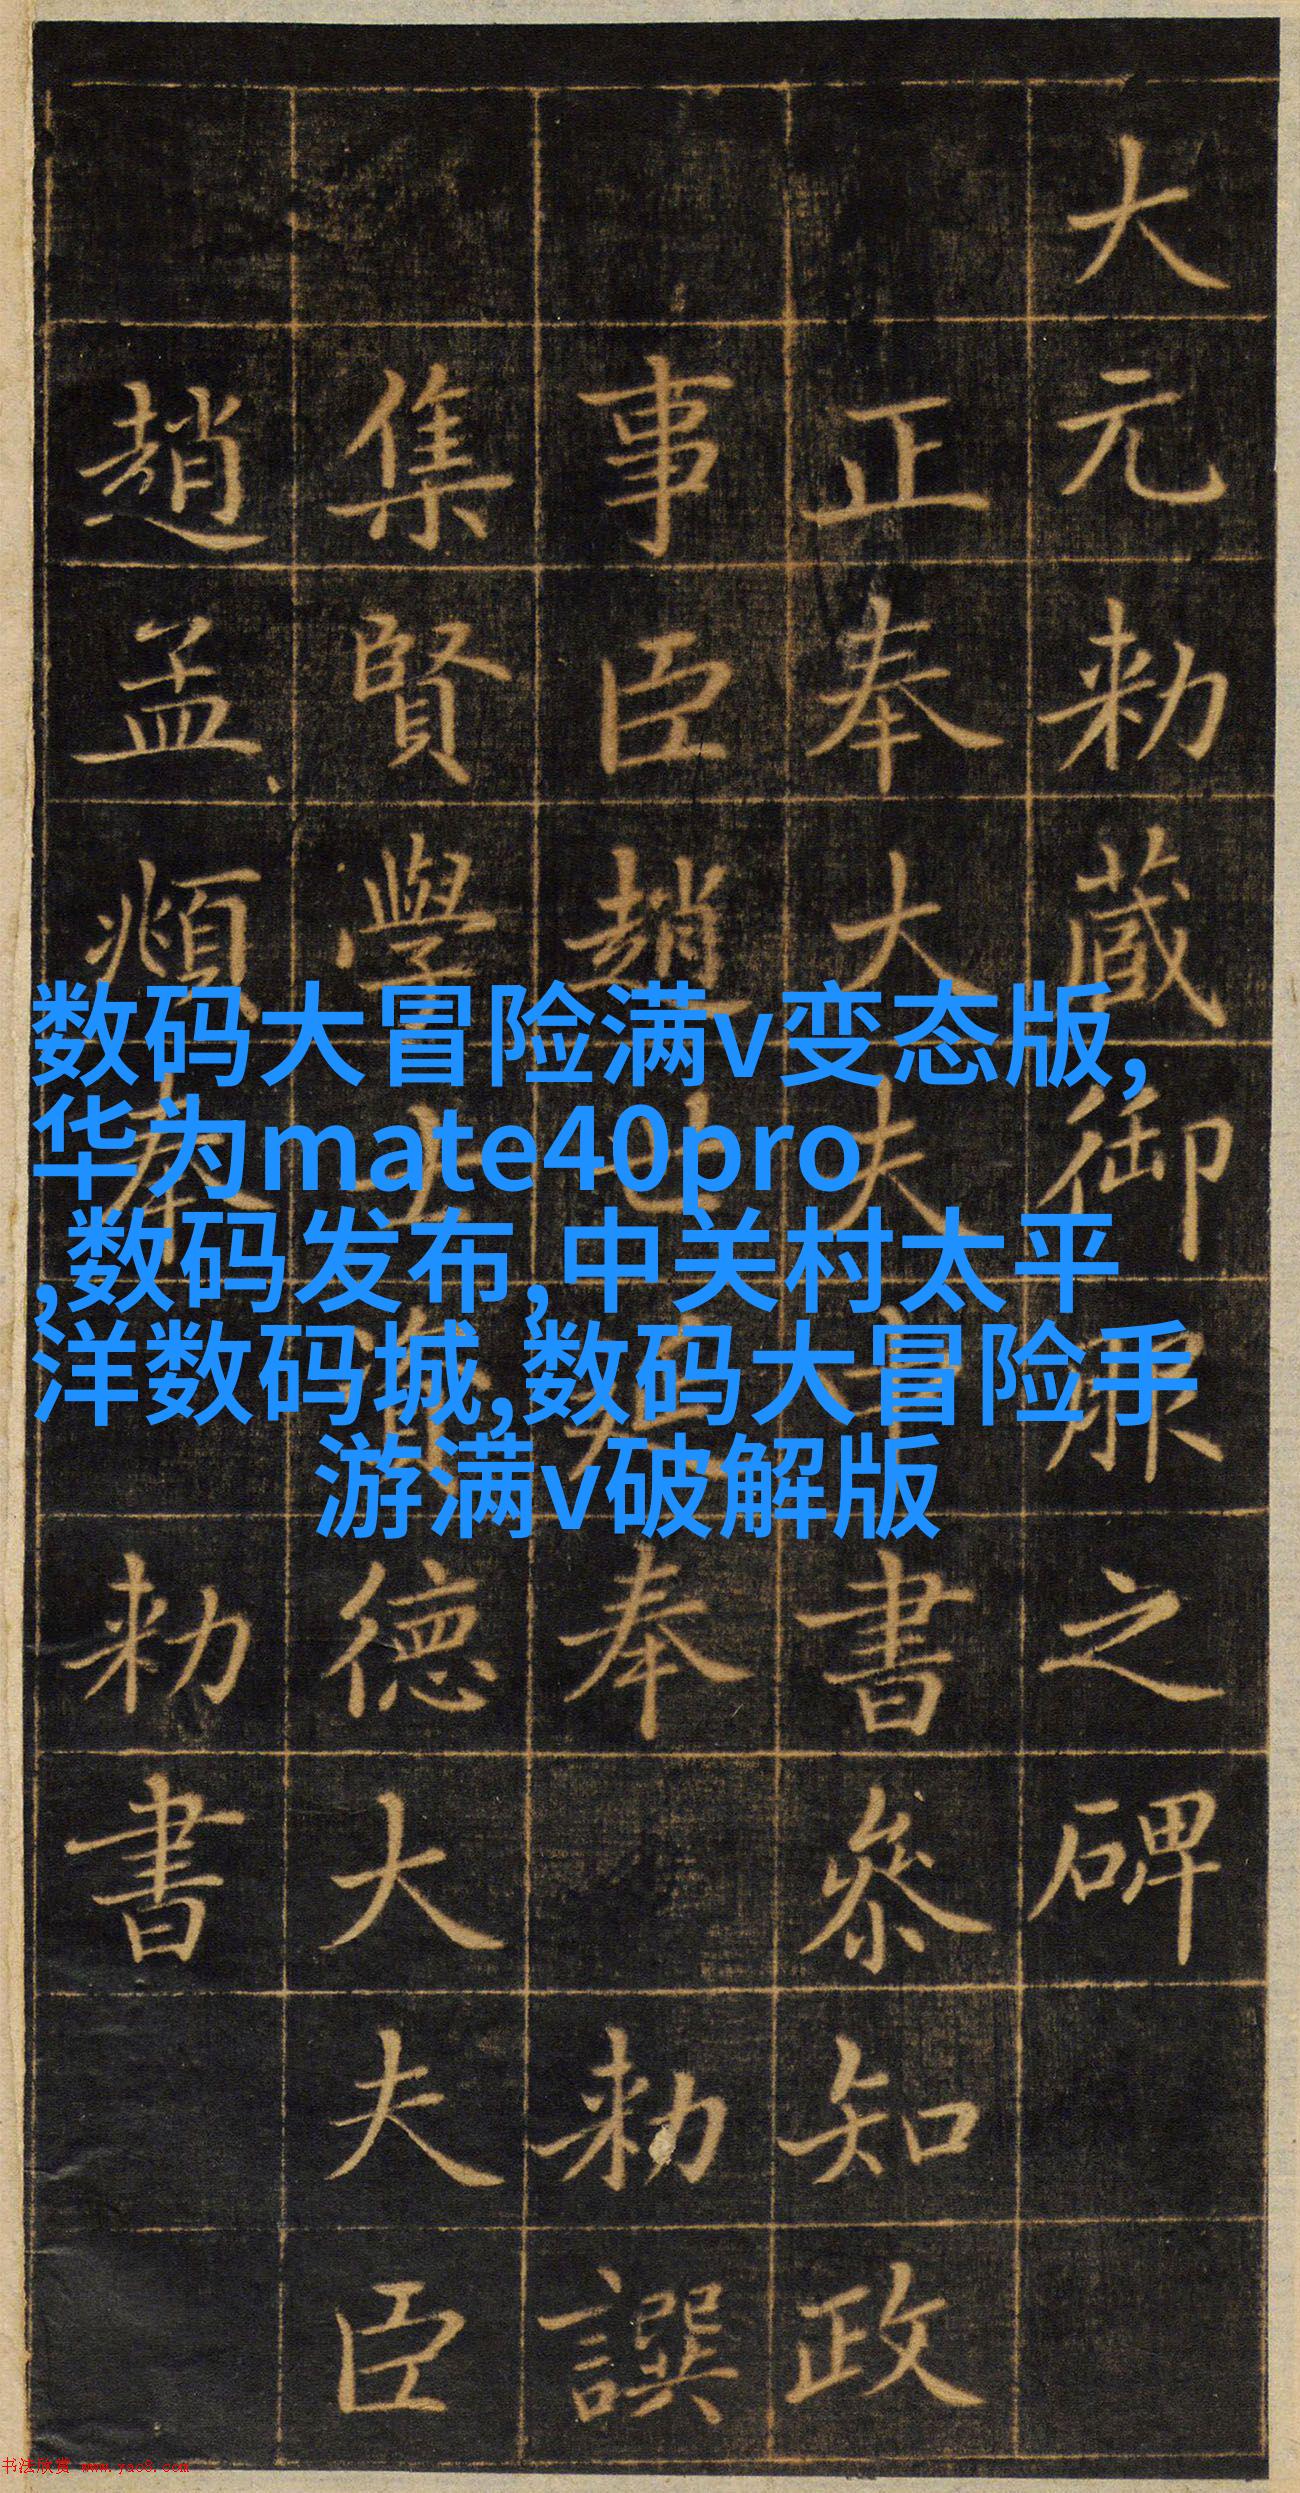 大元勑藏御服之碑
正奉大夫中書參知政
事臣趙世延奉勑譔
集賢學士資德大夫臣
趙孟頫奉勑書
数码大冒险满v变态版,
华为mate40pro
,数码发布,中关村太平
洋数码城,数码大冒险手
游满v破解版
书法欣赏 www.yac8.com